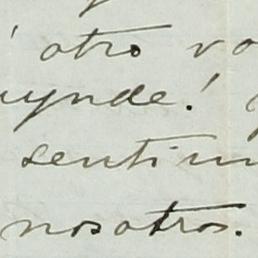 otro vo
uynde!
sentim
nosotros.